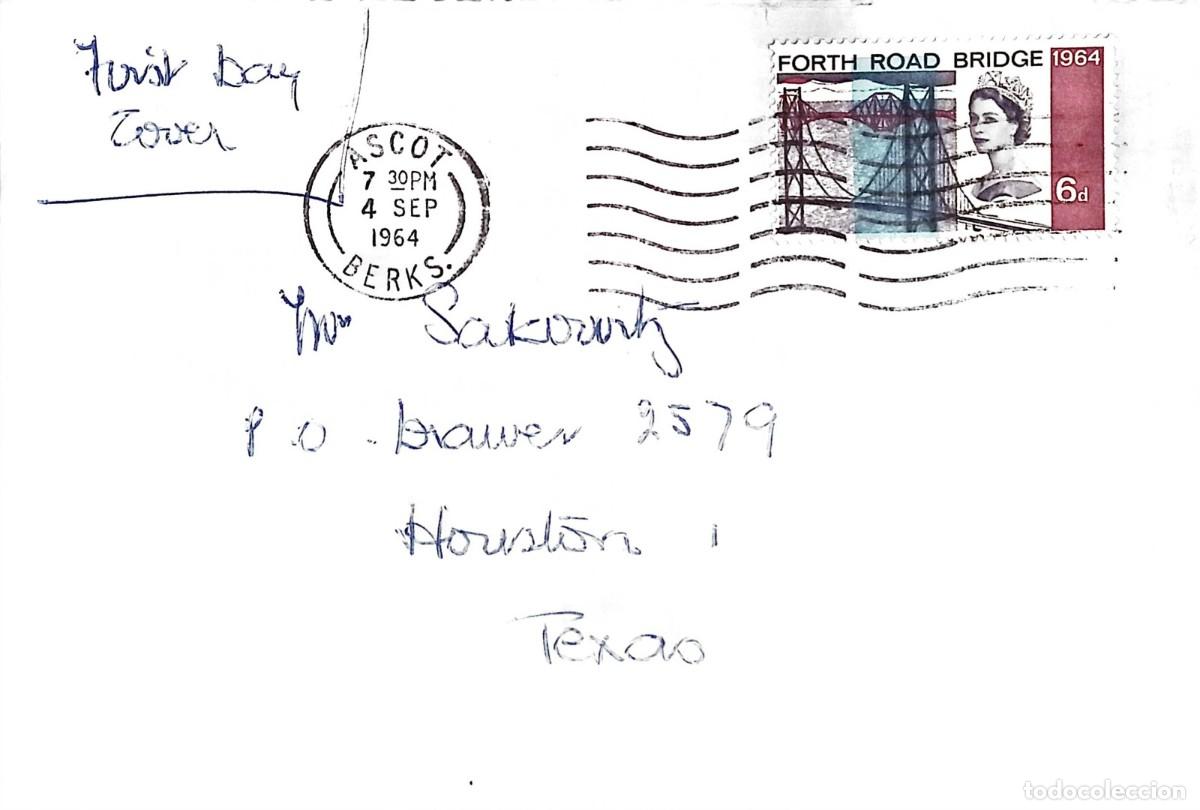 First Day
Cover
FORTH ROAD BRIDGE 1964
6d
ASCOT
7 30PM
4 SEP
1964
BERKS.
Mr Sakowitz
P.O. Drawer 2579
Houston 1
Texas
todocoleccion